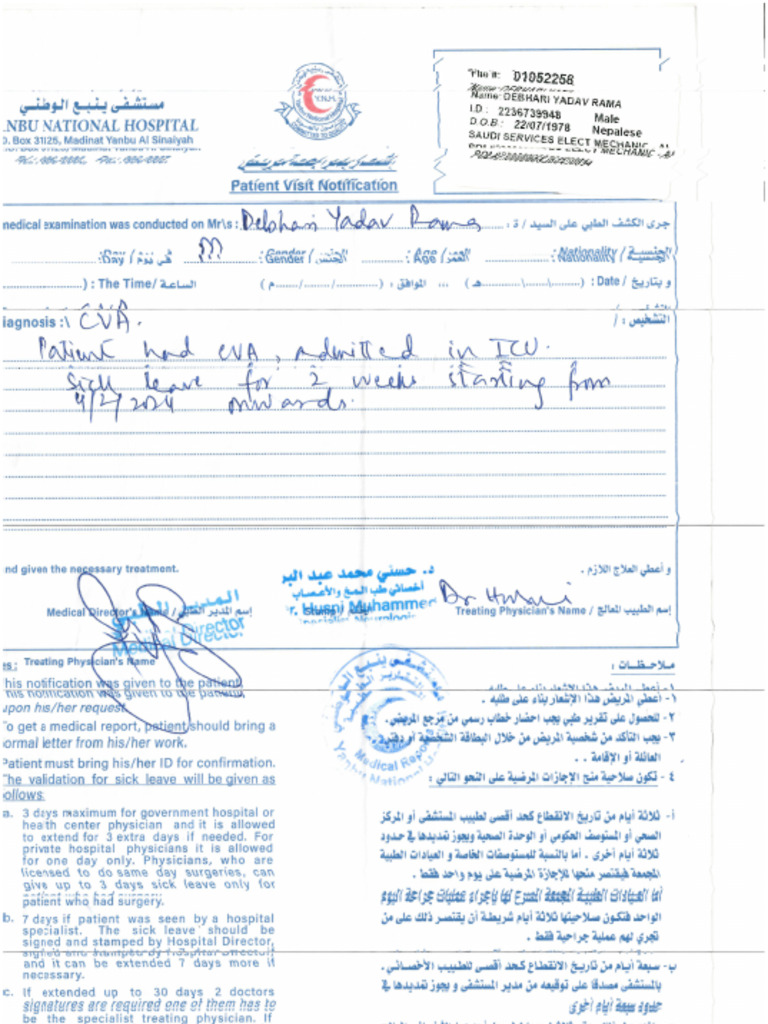 مستشفى ينبع الوطني
ANBU NATIONAL HOSPITAL
O. Box 31125, Madinat Yanbu Al Sinaiyah
Patient Visit Notification
File #: 01052258
Name: DEBHARI YADAV RAMA
I.D.: 2236739948 Male
D.O.B.: 22/07/1978 Nepalese
SAUDI SERVICES ELECT MECHANIC - AL
medical examination was conducted on Mr\s : Debhari Yadav Rama جرى الكشف الطبي على السيد / ة :
Day / في يوم : M Gender / الجنس : Age / العمر : Nationality / الجنسية :
The Time / الساعة ( : ) الموافق : ( .../.../... م ) ( ...\...\... هـ ) Date / و بتاريخ :
iagnosis :\ CVA. التشخيص : /
Patient had CVA, admitted in ICU.
Sick leave for 2 weeks starting from
4/2/2024 onwards.
nd given the necessary treatment. و أعطي العلاج اللازم .
د. حسني محمد عبد البر
أخصائي طب المخ والأعصاب
r. Husni Muhammed
Specialist Neurologist
Medical Director's Name / إسم المدير الطبي
المدير الطبي
Medical Director
Dr Husni
Treating Physician's Name / إسم الطبيب المعالج
es : Treating Physician's Name
his notification was given to the patient,
upon his/her request.
To get a medical report, patient should bring a
ormal letter from his/her work.
Patient must bring his/her ID for confirmation.
The validation for sick leave will be given as
ollows
a. 3 days maximum for government hospital or
health center physician and it is allowed
to extend for 3 extra days if needed. For
private hospital physicians it is allowed
for one day only. Physicians, who are
licensed to do same day surgeries, can
give up to 3 days sick leave only for
patient who had surgery.
b. 7 days if patient was seen by a hospital
specialist. The sick leave should be
signed and stamped by Hospital Director,
and it can be extended 7 days more if
necessary.
c. If extended up to 30 days 2 doctors
signatures are required one of them has to
be the specialist treating physician. If
مستشفى ينبع الوطني
التقارير الطبية
Medical Reports
Yanbu National
ملاحظات :
١- أعطي المريض هذا الإشعار بناء على طلبه .
٢- للحصول على تقرير طبي يجب احضار خطاب رسمي من مرجع المريض.
٣- يجب التأكد من شخصية المريض من خلال البطاقة الشخصية أو دفتر
العائلة أو الإقامة . .
٤ - تكون صلاحية منح الإجازات المرضية على النحو التالي :
أ- ثلاثة أيام من تاريخ الانقطاع كحد أقصى لطبيب المستشفى أو المركز
الصحي أو المستوصف الحكومي أو الوحدة الصحية ويجوز تمديدها في حدود
ثلاثة أيام أخرى . أما بالنسبة للمستوصفات الخاصة و العيادات الطبية
المجمعة فيقتصر منحها للإجازة المرضية على يوم واحد فقط .
أما العيادات الطبية المجمعة المصرح لها بإجراء عمليات جراحة اليوم
الواحد فتكون صلاحيتها ثلاثة أيام شريطة أن يقتصر ذلك على من
تجري لهم عملية جراحية فقط .
ب- سبعة أيام من تاريخ الانقطاع كحد أقصى للطبيب الأخصائي .
بالمستشفى مصدقا على توقيعه من مدير المستشفى و يجوز تمديدها في
حدود سبعة أيام أخرى